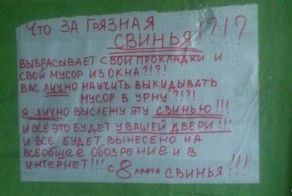 Что ЗА ГРЯЗНАЯ
СВИНЬЯ?!?!?
ВЫБРАСЫВАЕТ СВОИ ПРОКЛАДКИ И
СВОЙ МУСОР ИЗ ОКНА?!?!
ВАС ЛИЧНО НАУЧИТЬ ВЫКИДЫВАТЬ
МУСОР В УРНУ?!?!
Я ЛИЧНО ВЫСЛЕЖУ ЭТУ СВИНЬЮ!!!
И ВСЁ ЭТО БУДЕТ У ВАШЕЙ ДВЕРИ!!!
И ВСЕ БУДЕТ ВЫНЕСЕНО НА
ВСЕОБЩЕЕ ОБОЗРЕНИЕ И В
ИНТЕРНЕТ!!!
С 8 МАРТА СВИНЬЯ!!!